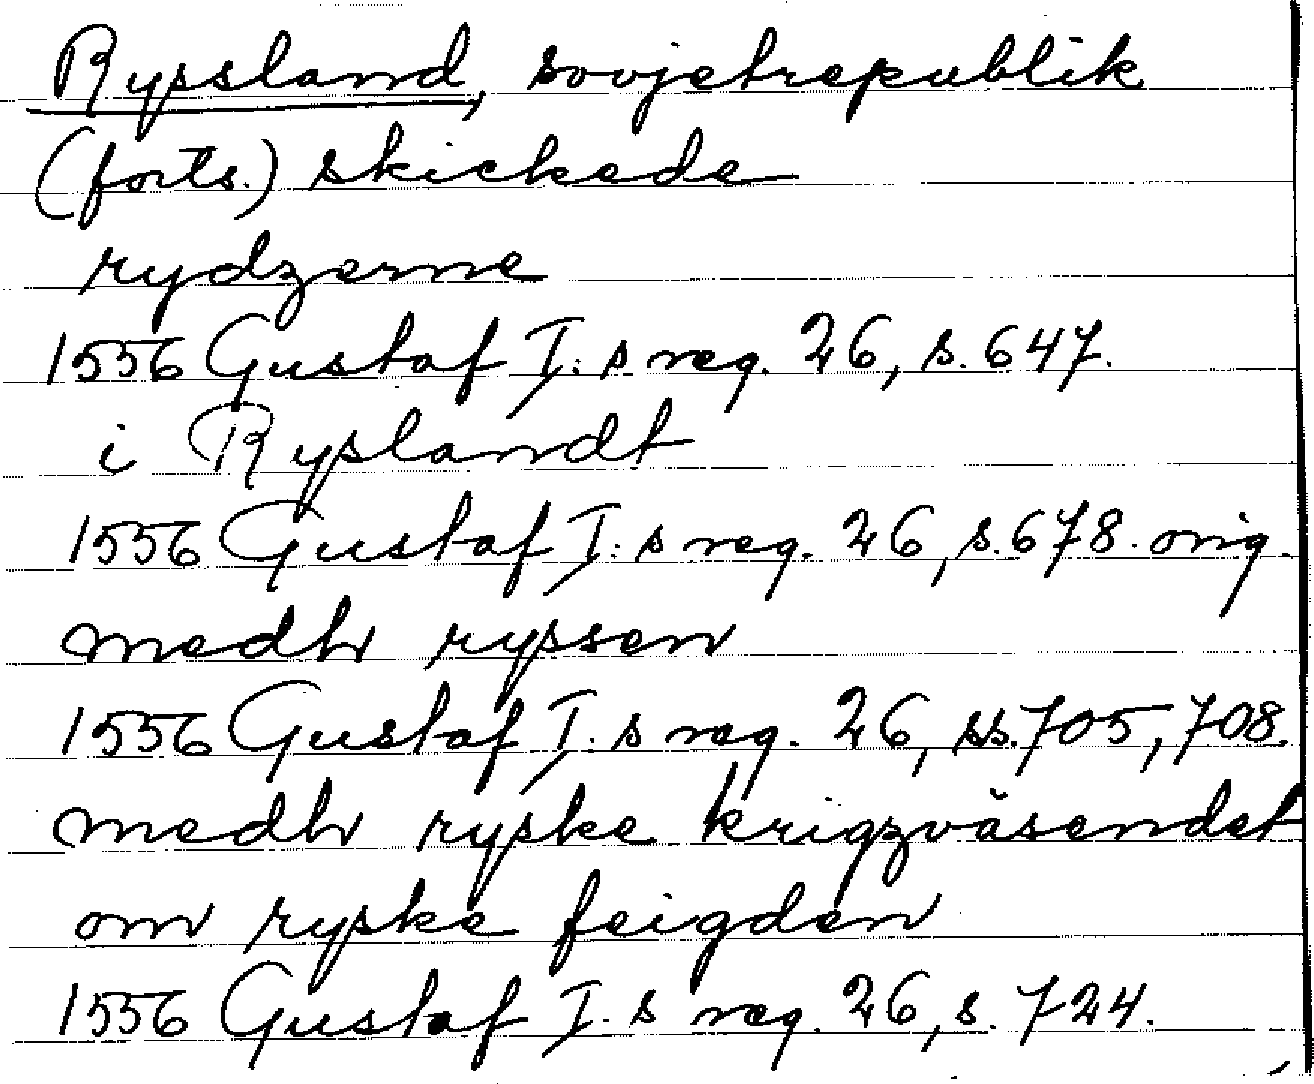 Ryssland, sovjetrepublik
(forts.) skickede
rydzerne
1556 Gustaf I:s reg. 26, s. 647.
i Ryslandt
1556 Gustaf I:s reg. 26, s. 678. orig.
medh ryssen
1556 Gustaf I:s reg. 26, ss. 705, 708.
medh ryske krigzväsendet
om ryske feigden
1556 Gustaf I:s reg. 26, s. 724.